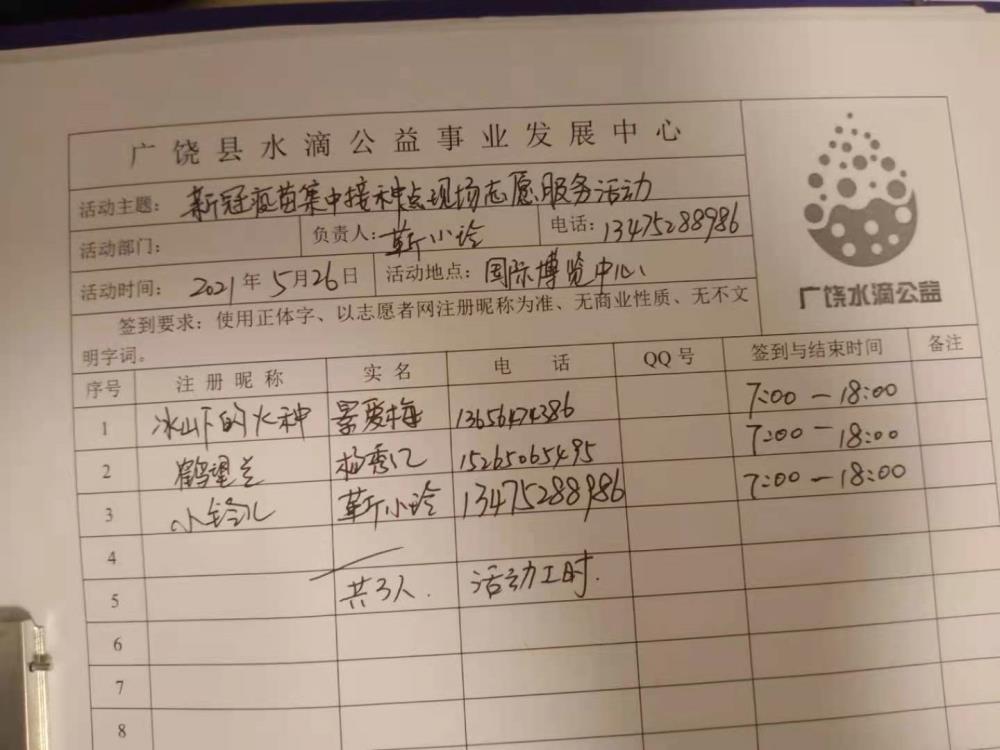 广饶县水滴公益事业发展中心
活动主题: 新冠疫苗集中接种点现场志愿服务活动
活动部门: 负责人: 靳小玲 电话: 13475288986
活动时间: 2021年5月26日 活动地点: 国际博览中心
广饶水滴公益
签到要求:使用正体字、以志愿者网注册昵称为准、无商业性质、无不文
明字词。
序号 注册昵称 实名 电话 QQ号 签到与结束时间 备注
1 冰山下的火种 景爱梅 13656474386 7:00-18:00
2 鹤望兰 杨秀江 15265065495 7:00-18:00
3 小铃儿 靳小玲 13475288986 7:00-18:00
4
5 共3人. 活动工时.
6
7
8